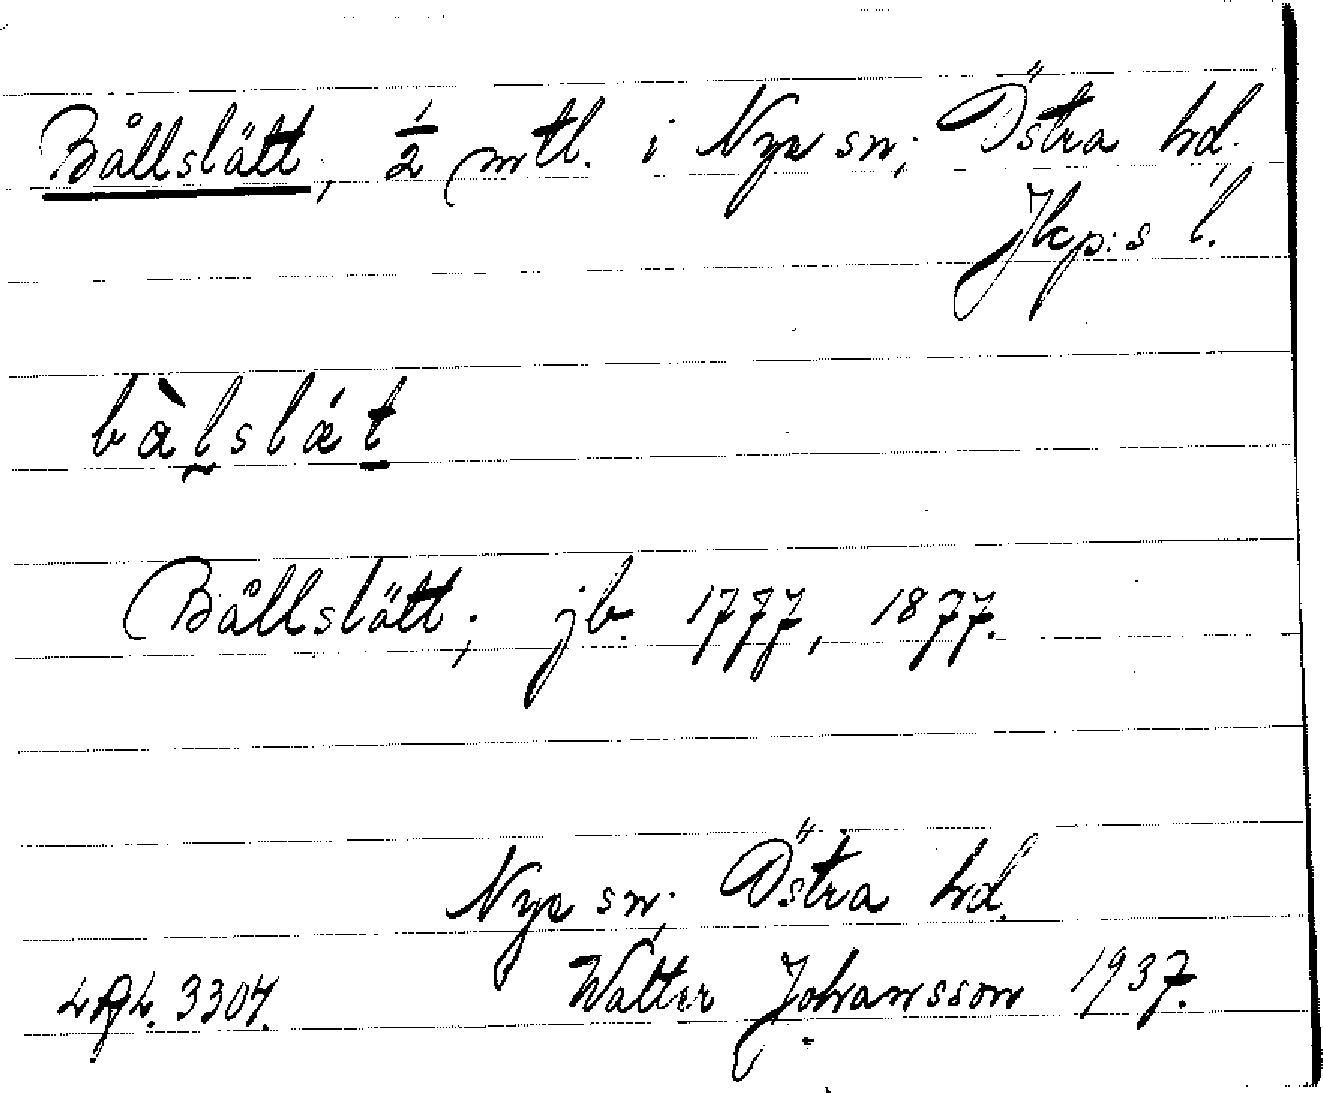 Bållslätt, ½ mtl. i Nye sn; Östra hd.
Jkp:s l.
bàlslǽt
Bållslätt; jb. 1777, 1877.
Nye sn; Östra hd.
3304. Walter Johansson 1937.